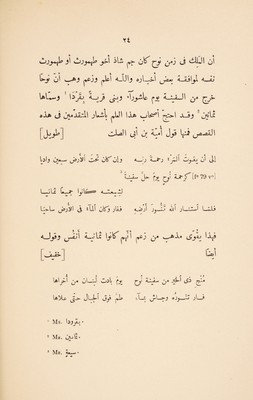 ٢٤
أن الملك فى زمن نوح كان جم شاذ أخو طهمورث أو طهمورث
نفسه لموافقة بعض أخباره والله أعلم وزعم وهب أن نوحًا
خرج من السفينة يوم عاشورآء وبنى قرية بقَرْدَا ¹ وسمّاها
ثمانين ² وقد احتجّ أصحاب هذا العلم بأشعار المتقدّمين فى هذه
القصص فمنها قول أُميّة بن أبى الصلت [طويل]
إلى أن يفوت المَرْءَ رحمة ربه وإن كان تحت الأرض سبعين واديا
[fº 79 vº] كرحمة نوح يوم حلّ سفينة ³
لشيعته كانوا جميعا ثمانيا
فلمّا استنار الله تَنُّورَ أَرْضِهِ ففار وكان المآء فى الأرض ساحيا
فهذا يقوّى مذهب من زعم أنّهم كانوا ثمانية أنفُس وقوله
أيضًا [خفيف]
مُنْجِ ذى الخير من سفينة نوح يومَ بادت لُبنانُ من أخراها
فار تنوره وجاش بمآء طمّ فوق الجبال حتّى علاها
¹ Ms. بقرودا.
² Ms. ثمنين.
³ Ms.